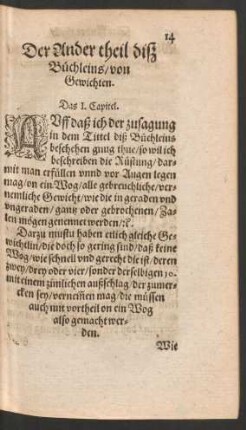 14
Der Ander theil diß
Büchleins/von
Gewichten.
Das I. Capitel.
AUff daß ich der zusagung
in dem Tittel diß Büchleins
beschehen gnug thue/so wil ich
beschreiben die Rüstung/dar-
mit man erfüllen vnnd vor Augen legen
mag/on ein Wog/alle gebreuchliche/ver-
nemliche Gewicht/wie die in geraden vnd
vngeraden/gantz oder gebrochenen/Za-
len mögen genennet werden/:c.
Darzu mustu haben etlich gleiche Ge-
wichtlin/die doch so gering sind/daß keine
Wog/wie schnell vnd gerecht die ist/deren
zwey/drey oder vier/sonder derselbigen 10.
mit einem zimlichen außschlag/der zumer-
cken sey/vernemen mag/die müssen
auch mit vortheil on ein Wog
also gemacht wer-
den.
Wie